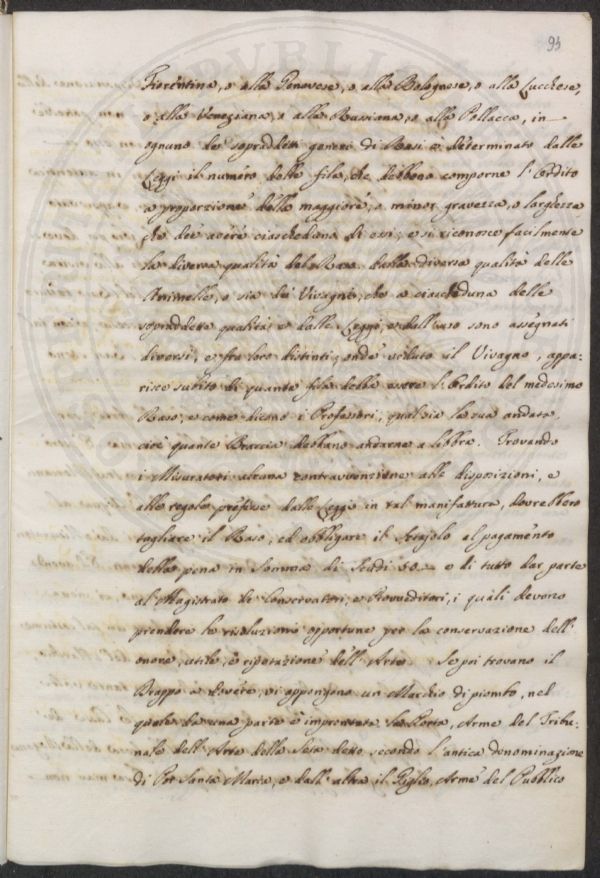 93
Fiorentina, o alla Genovese, o alla Bolognese, o alla Lucchese,
o alla Veneziana, o alla Russiana, o alla Pollacca, in
ognuno dei sopraddetti generi di Rasi è determinato dalle
Leggi il numero delle fila, che debbono comporne l'Ordito
a proporzione della maggiore, o minor gravezza, o larghezza
che dee avere ciascheduno di essi; e si riconosce facilmente
la diversa qualità del Raso dalla diversa qualità delle
Animelle, o sia dei Vivagni, che a ciascheduna delle
sopraddette qualità, e dalle Leggi, e dall'uso sono assegnati
diversi, e fra loro distinti, onde veduto il Vivagno, appa-
risce subito di quante fila debba essere l'Ordito del medesimo
Raso, e come dicono i Professori, qual sia la sua andata,
cioè quante Braccia debbano andarne a libbra. Trovando
i Misuratori alcuna contravvenzione alle disposizioni, e
alle regole prefisse dalle Leggi in tal manifattura, dovrebbero
tagliare il Raso, ed obbligare il Setajolo al pagamento
della pena in Somma di Scudi 50.— e di tutto dar parte
al Magistrato de' Conservatori, e Provveditori, i quali devono
prendere le risoluzioni opportune per la conservazione dell'
onore, utile, e riputazione dell'Arte. Se poi trovano il
Drappo a dovere, vi appongono un Marchio di piombo, nel
quale da una parte è improntata la Porta, Arme del Tribu-
nale dell'Arte della Seta detto secondo l'antica denominazione
di Por Santa Maria, e dall'altra il Giglio, Arme del Pubblico